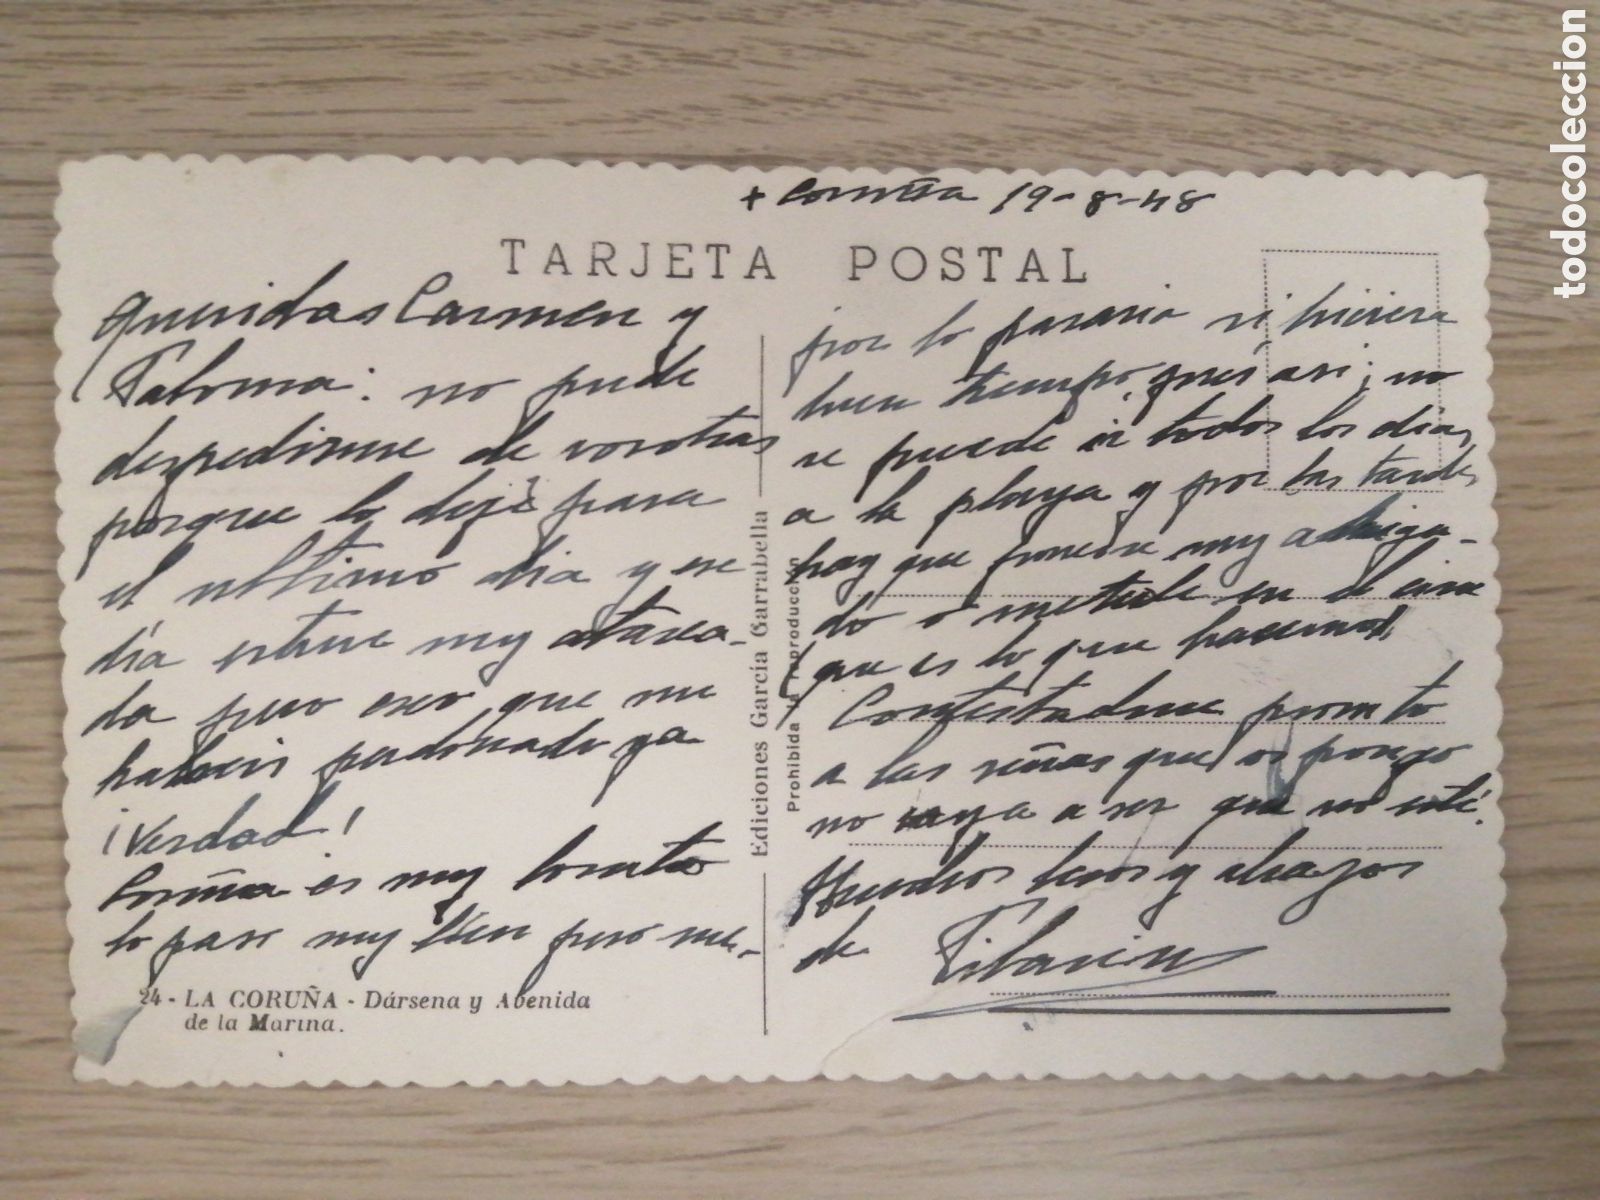 + Coruña 19-8-48
TARJETA POSTAL
Queridas Carmen y
Paloma: no pude
despedirme de vosotras
porque lo dejé para
el ultimo dia y ese
día estuve muy atarea-
da pero creo que me
habreis perdonado ya
¡Verdad!
Coruña es muy bonito
lo paso muy bien pero me-
jor lo pasaria si hiciera
buen tiempo, pues asi, no
se puede ir todos los dias,
a la playa y por las tardes
hay que ponerse muy abriga-
do o meterse en el cine
que es lo que hacemos.
Contestadme pronto
a las señas que os pongo
no vaya a ser que no esté.
Muchos besos y abrazos
de Pilarin
24 - LA CORUÑA - Dársena y Avenida
de la Marina.
Ediciones García Garrabella
Prohibida la reproducción
todocoleccion